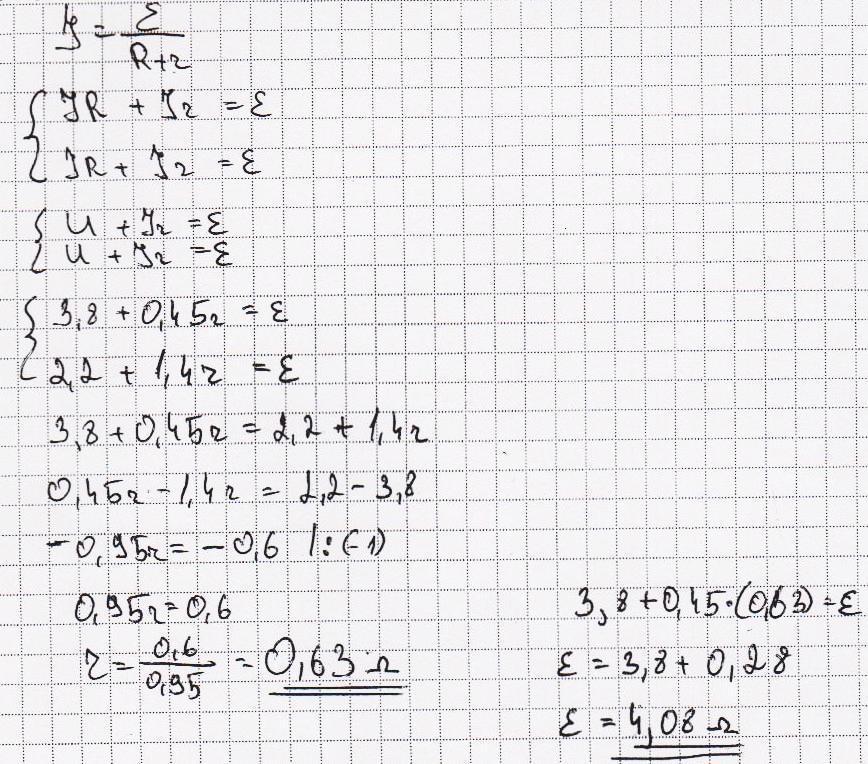 J = ε / (R+r)
JR + Jr = ε
JR + Jr = ε
U + Jr = ε
U + Jr = ε
3,8 + 0,45r = ε
2,2 + 1,4r = ε
3,8 + 0,45r = 2,2 + 1,4r
0,45r - 1,4r = 2,2 - 3,8
-0,95r = -0,6 /:(-1)
0,95r = 0,6
r = 0,6 / 0,95 = 0,63 Ω
3,8 + 0,45·(0,63) = ε
ε = 3,8 + 0,28
ε = 4,08 Ω